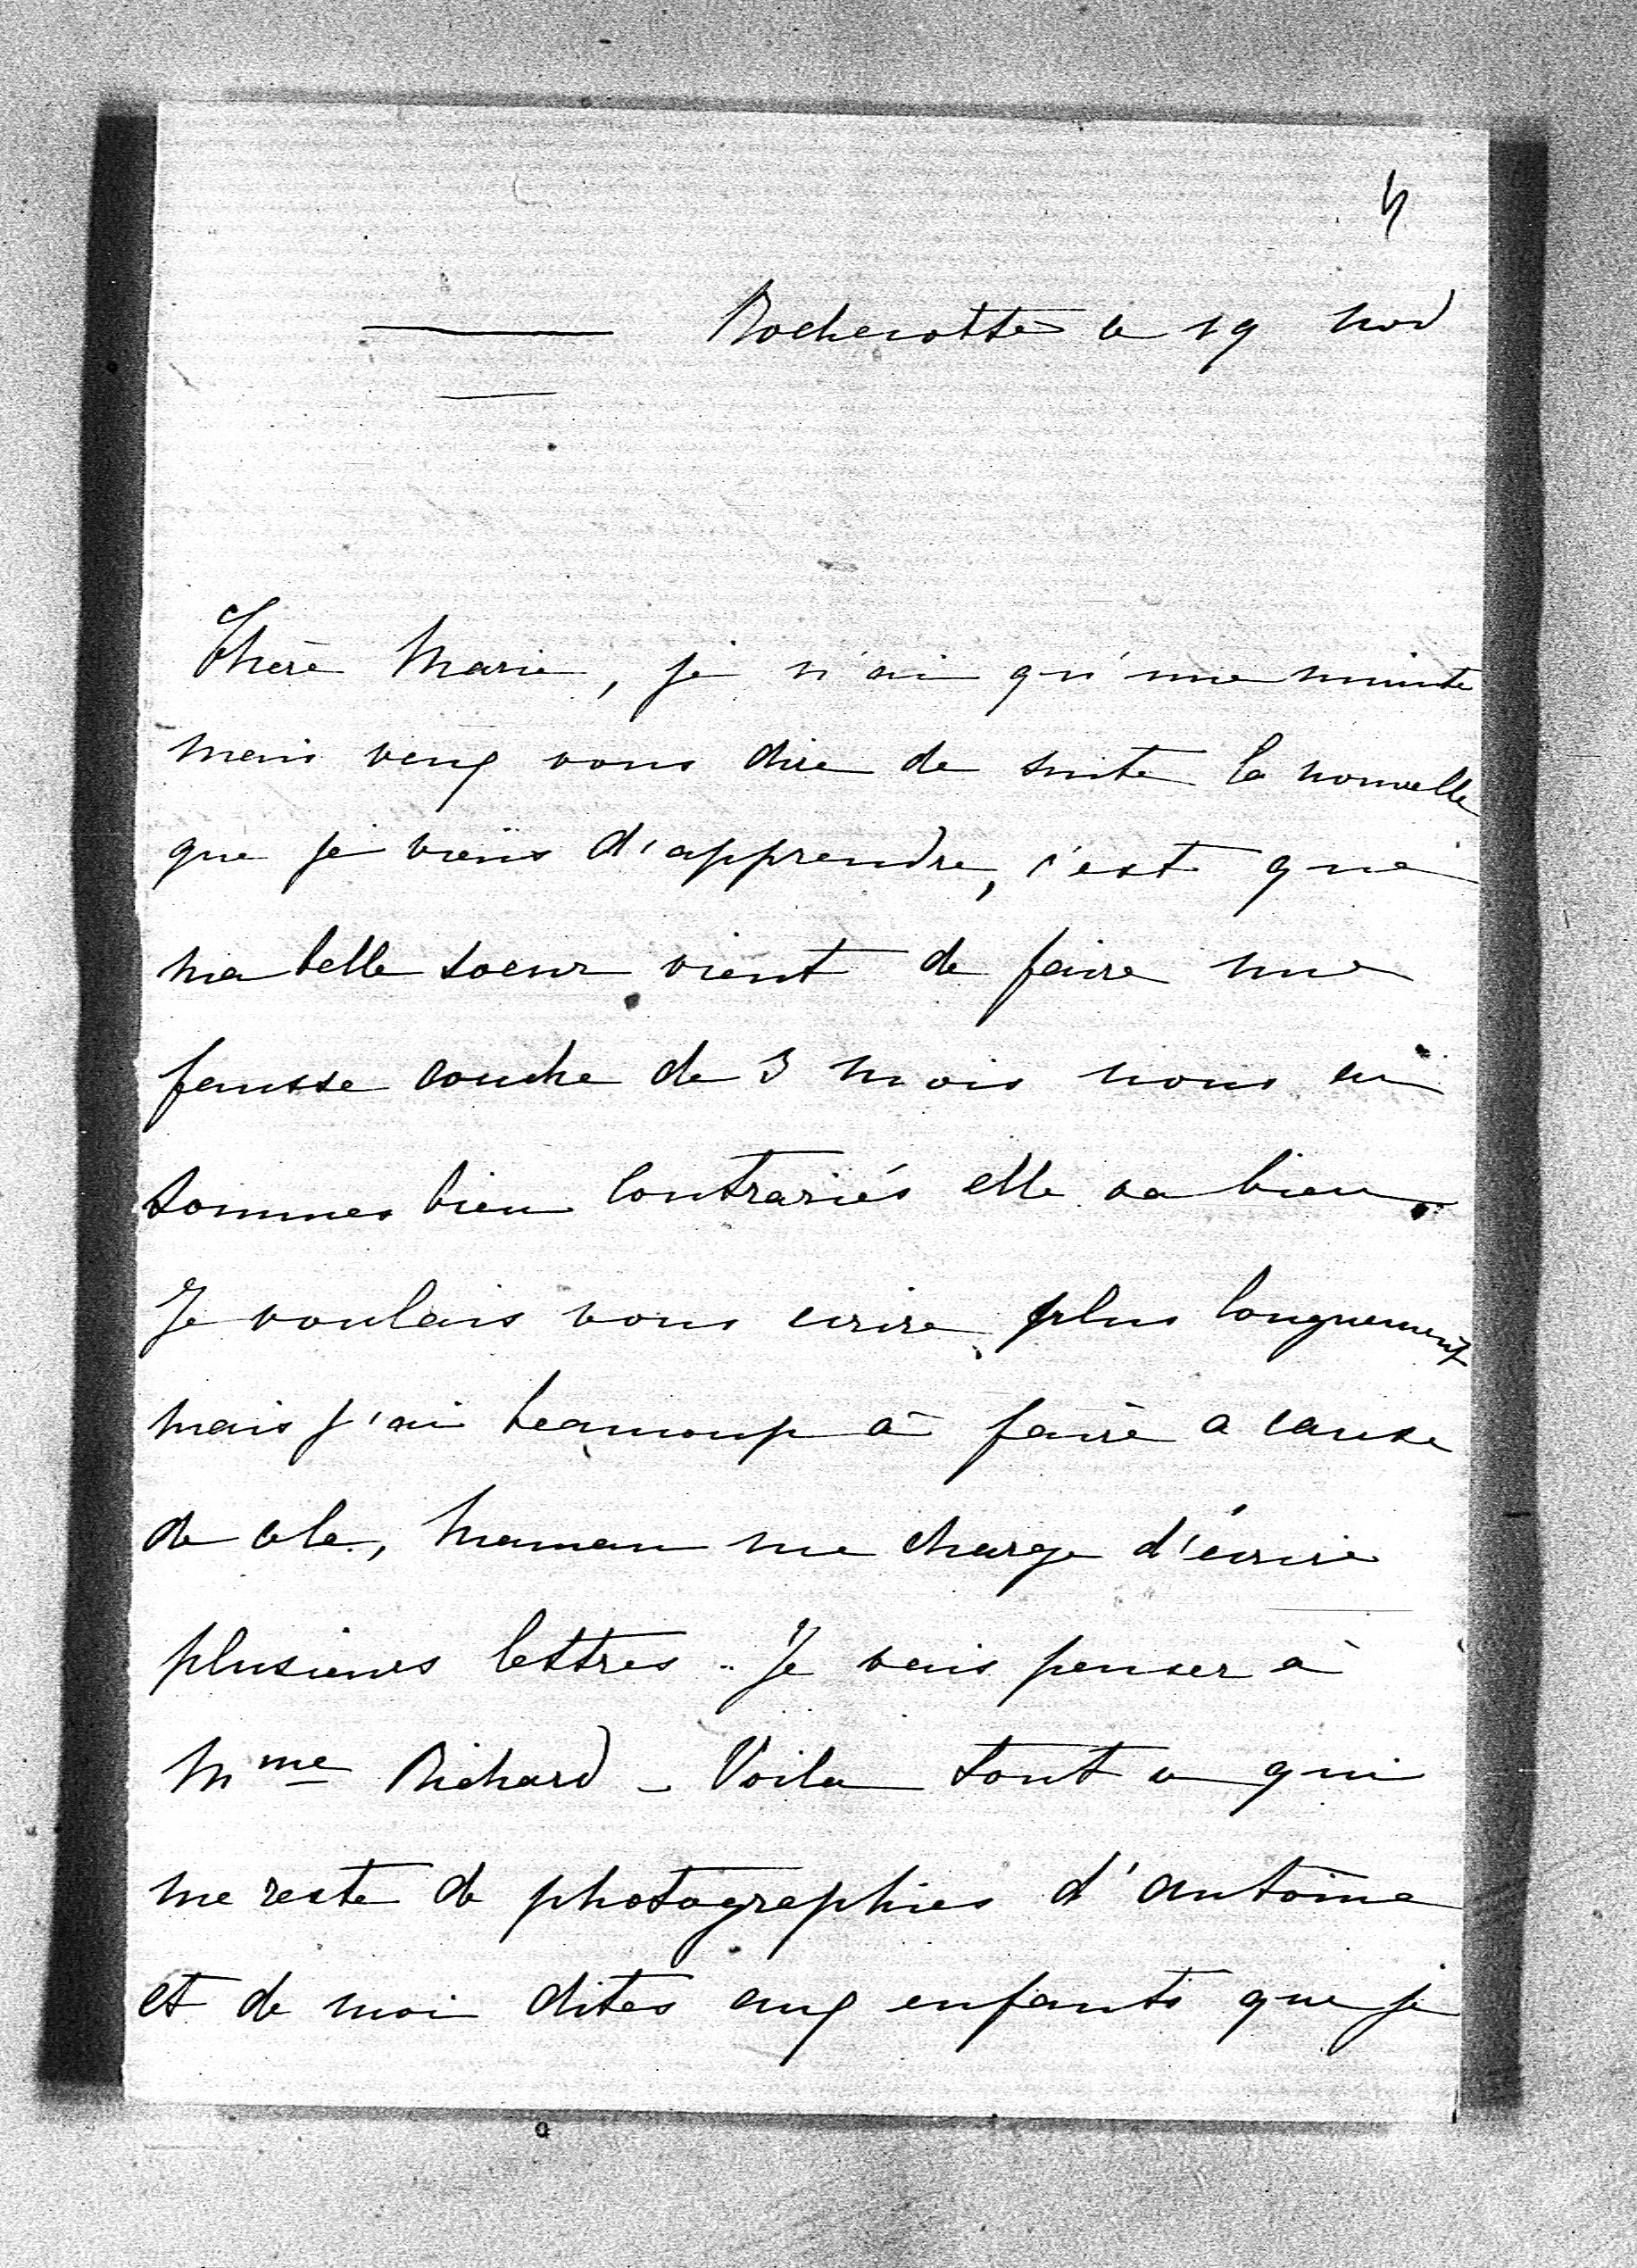 Rochecotte ce 19 nov
Chère Marie, je n'ai qu'une minute
mais veux vous dire de suite la nouvelle
que je viens d'apprendre, c'est que
ma belle soeur vient de faire une
fausse couche de 3 mois nous en
sommes bien contrariés elle va bien.
Je voulais vous ecrire plus longuement
mais j'ai beaucoup à faire a cause
de cela, Maman me charge d'écrire
plusieurs lettres.. Je vais penser à
Mme Richard - Voila tout ce qui
me reste de photographies d'Antoine
et de moi dites aux enfants que je